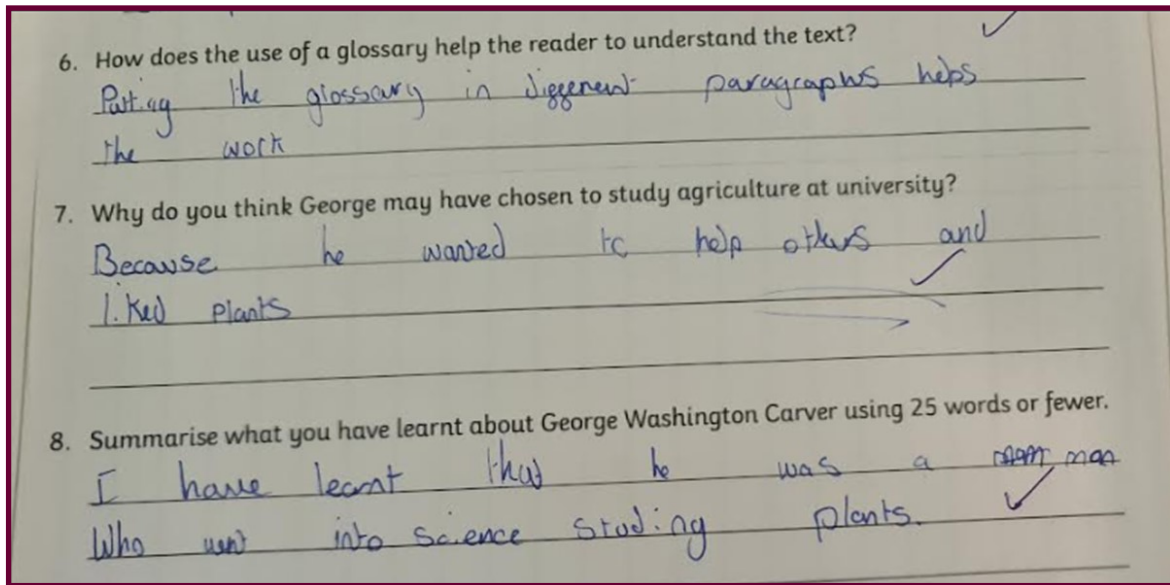 6. How does the use of a glossary help the reader to understand the text?
Putting the glossary in diggenent paragraphs helps
the work
7. Why do you think George may have chosen to study agriculture at university?
Because he wanted to help others and
liked plants
8. Summarise what you have learnt about George Washington Carver using 25 words or fewer.
I have learnt that he was a man
Who went into science studing plants.